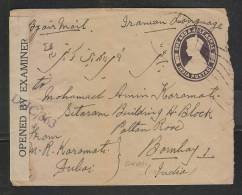 By air Mail. Iranian Language
OPENED BY EXAMINER
INDIA POSTAGE
To
Mohamad Amin Karamati
Sitaram Building H. Block
Paltan Road
Bombay 1
India
From
M. R. Karamati
Dubai